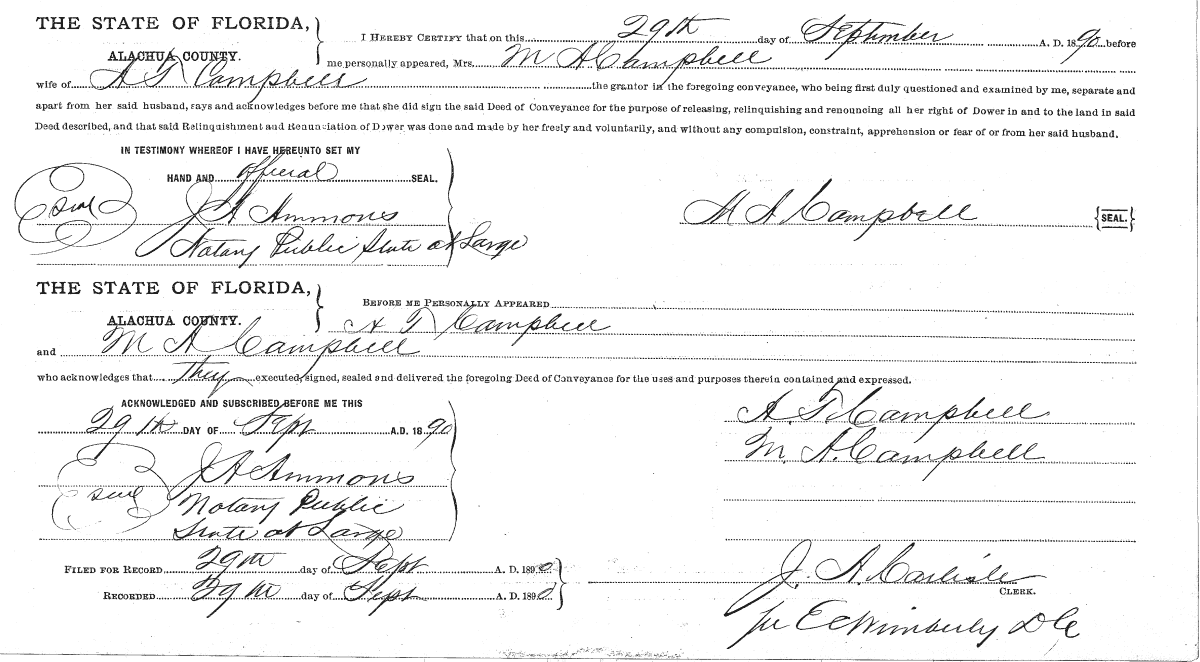 THE STATE OF FLORIDA,
ALACHUA COUNTY.
I HEREBY CERTIFY that on this 29th day of September A. D. 1890 before
me personally appeared, Mrs. M A Campbell
wife of A T Campbell the grantor in the foregoing conveyance, who being first duly questioned and examined by me, separate and
apart from her said husband, rays and acknowledges before me that she did sign the said Deed of Conveyance for the purpose of releasing, relinquishing and renouncing all her right of Dower in and to the land in said
Deed described, and that said Relinquishment and Renunciation of Dower was done and made by her freely and voluntarily, and without any compulsion, constraint, apprehension or fear of or from her said husband.
IN TESTIMONY WHEREOF I HAVE HEREUNTO SET MY
HAND AND official SEAL.
seal
J A Ammons
M A Campbell {SEAL.}
Notary Public State at Large
THE STATE OF FLORIDA,
ALACHUA COUNTY.
BEFORE ME PERSONALLY APPEARED
A T Campbell
and M A Campbell
who acknowledges that they executed, signed, sealed and delivered the foregoing Deed of Conveyance for the uses and purposes therein contained and expressed.
ACKNOWLEDGED AND SUBSCRIBED BEFORE ME THIS
29th DAY OF Sept A.D. 1890
A. T. Campbell
M. A. Campbell
seal
J A Ammons
Notary Public
State at Large
FILED FOR RECORD 29th day of Sept A. D. 1890
RECORDED 29th day of Sept A. D. 1890
J. A. Carlisle
CLERK.
per E C Wimberly D C